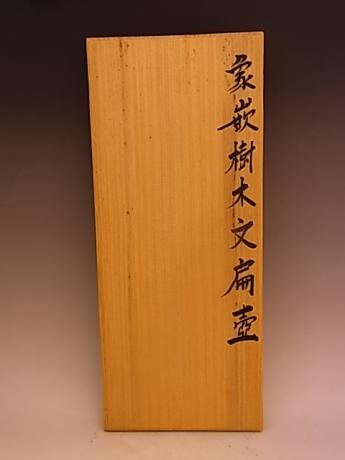 象嵌樹木文扁壺